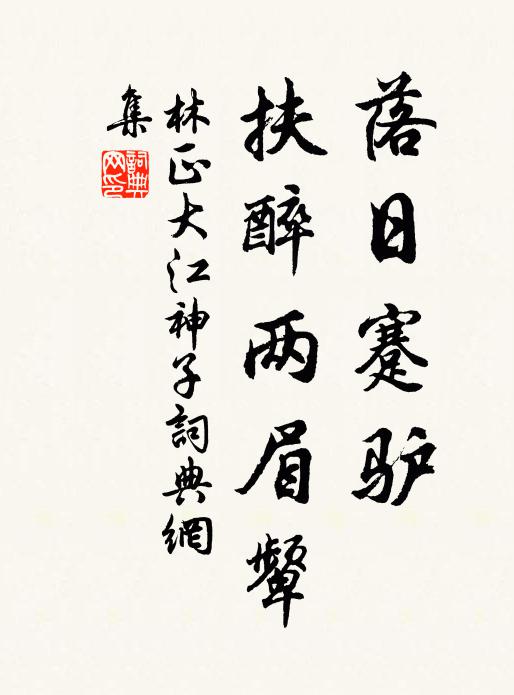 落日蹇驴
扶醉两眉颦
林正大江神子詞典網
集
詞典网印